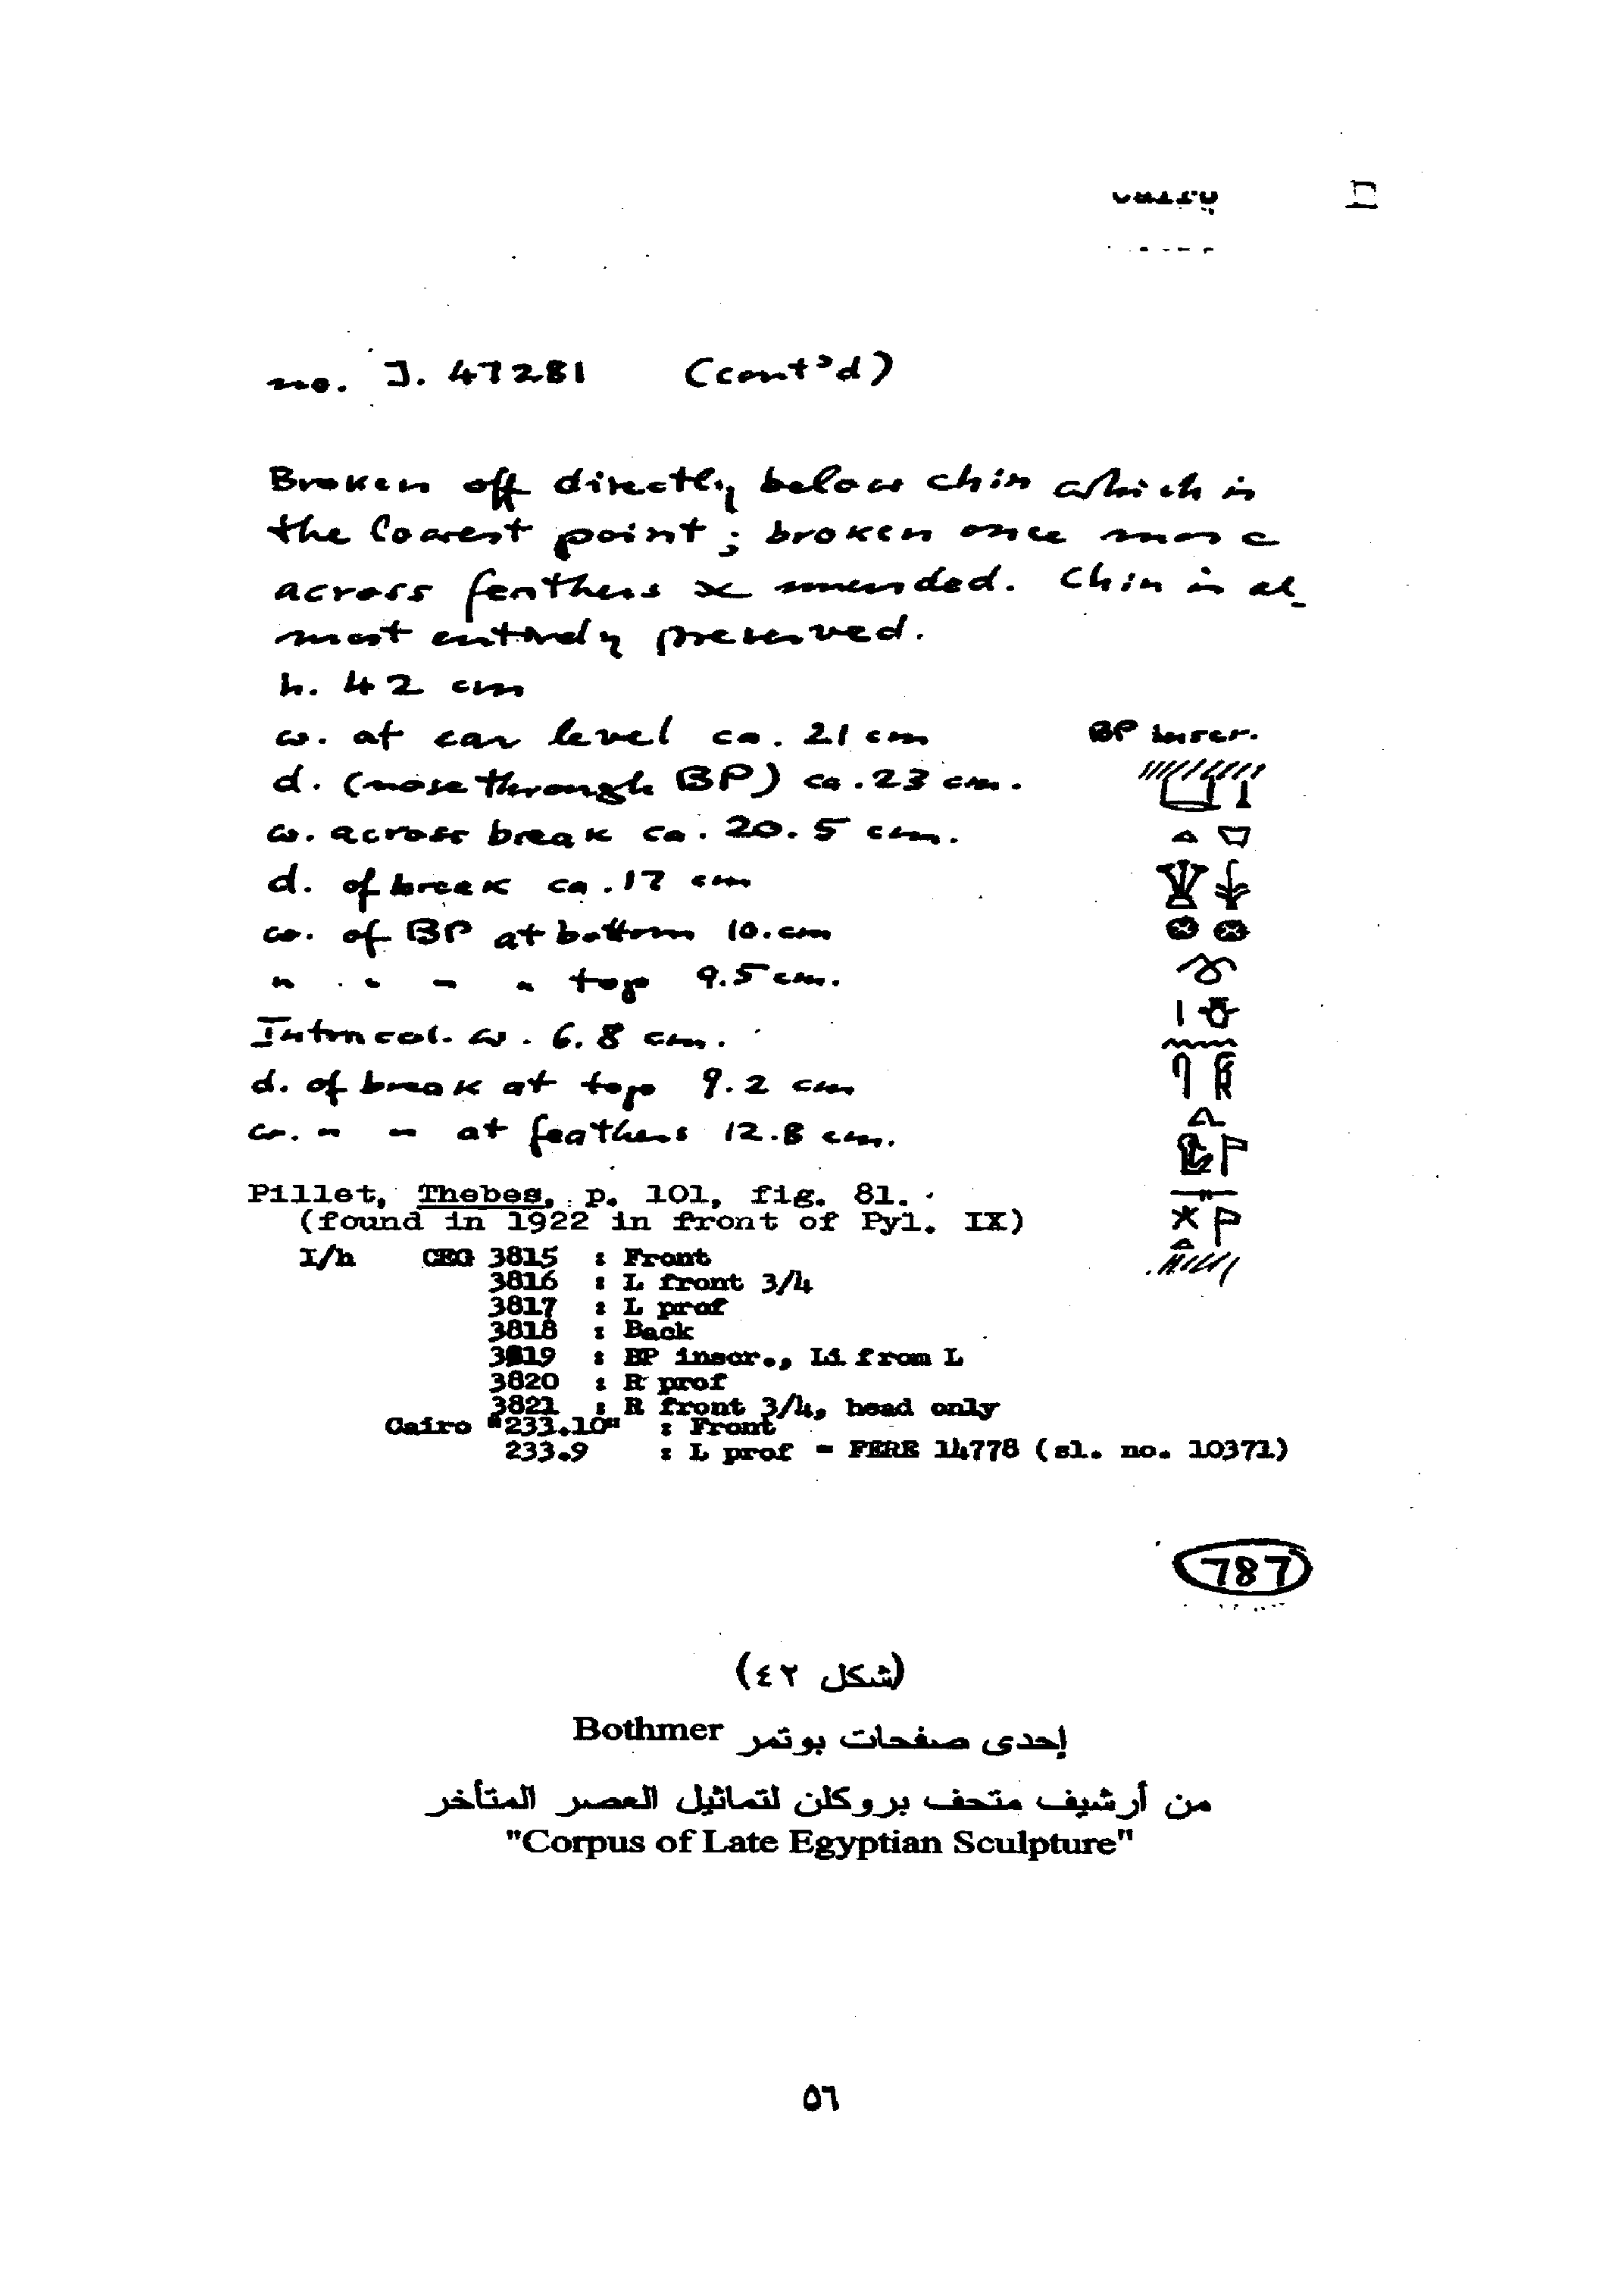 II
no. J. 47281 (cont'd)
Broken off directly below chin which is
the lowest point; broken once more
across feathers & mended. Chin is al-
most entirely preserved.
h. 42 cm
w. at ear level ca. 21 cm
d. (nose through BP) ca. 23 cm.
w. across break ca. 20.5 cm.
d. of break ca. 17 cm
w. of BP at bottom 10. cm
" " " " top 9.5 cm.
Intracol. w. 6.8 cm.
d. of break at top 9.2 cm
w. " " at feathers 12.8 cm.
BP inscr.
Pillet, Thebes, p. 101, fig. 81.
(found in 1922 in front of Pyl. IX)
I/h CEG 3815 : Front
3816 : L front 3/4
3817 : L prof
3818 : Back
3819 : BP inscr., Li from L
3820 : R prof
3821 : R front 3/4, head only
Cairo "233.10" : Front
233.9 : L prof = FERE 14778 (sl. no. 10371)
787
(شكل ٤٢)
إحدى صفحات بوتمر Bothmer
من أرشيف متحف بروكلن لتماثيل العصر المتأخر
"Corpus of Late Egyptian Sculpture"
٥٦